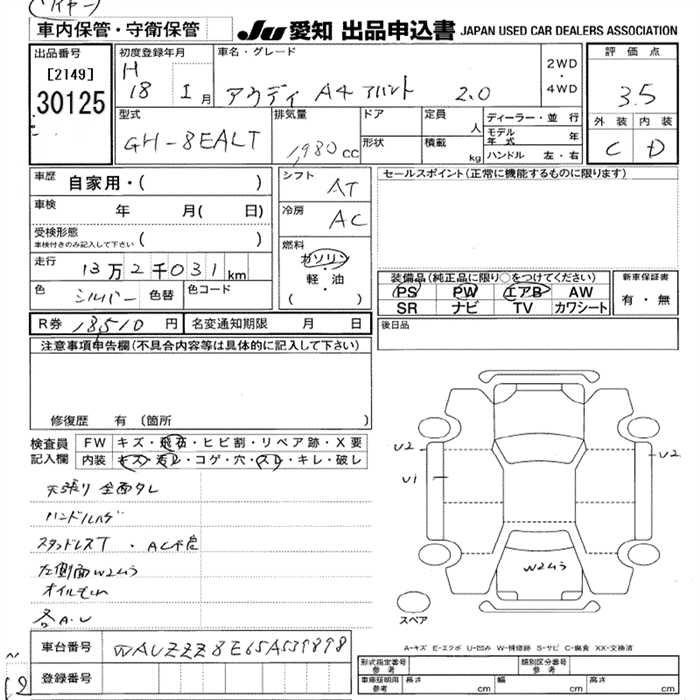 車内保管・守衛保管
Ju 愛知 出品申込書 JAPAN USED CAR DEALERS ASSOCIATION
出品番号
[2149]
30125
初度登録年月
H
18 1 月
車名・グレード
アウディ A4 アバント 2.0
2WD
・
4WD
評価点
3.5
外装 内装
C D
型式
GH-8EALT
排気量
1,980 cc
ドア
形状
定員
人
積載
kg
ディーラー・並 行
モデル年式 年
ハンドル 左・右
車歴 自家用・( )
車検 年 月( 日)
受検形態
車検付きのみ記入して下さい ( )
走行 13万2千031 km
色 シルバー 色替 色コード
R券 18,510 円 名変通知期限 月 日
シフト
AT
冷房
AC
燃料
ガソリン
・
軽・油
( )
セールスポイント(正常に機能するものに限ります)
装備品(純正品に限り○をつけてください)
PS PW エアB AW
SR ナビ TV カワシート
新車保証書
有・無
後日品
注意事項申告欄(不具合内容等は具体的に記入して下さい)
修復歴 有 (箇所
検査員
記入欄
FW キズ・飛石・ヒビ割・リペア跡・X要
内装 キズ・汚レ・コゲ・穴・スレ・キレ・破レ
天張り 全面タレ
ハンドルハゲ
スタッドレスT・AC不良
左側面W2ムラ
オイルモレ
各A.U
U2
U1
U2
W2ムラ
スペア
A-キズ E-エクボ U-凹み W-補修跡 S-サビ C-腐食 XX-交換済
車台番号 WAUZZZ8E65A539898
登録番号
型式指定番号
参考
類別区分番号
参考
車庫証明用
参考
長さ cm 幅 cm 高さ cm